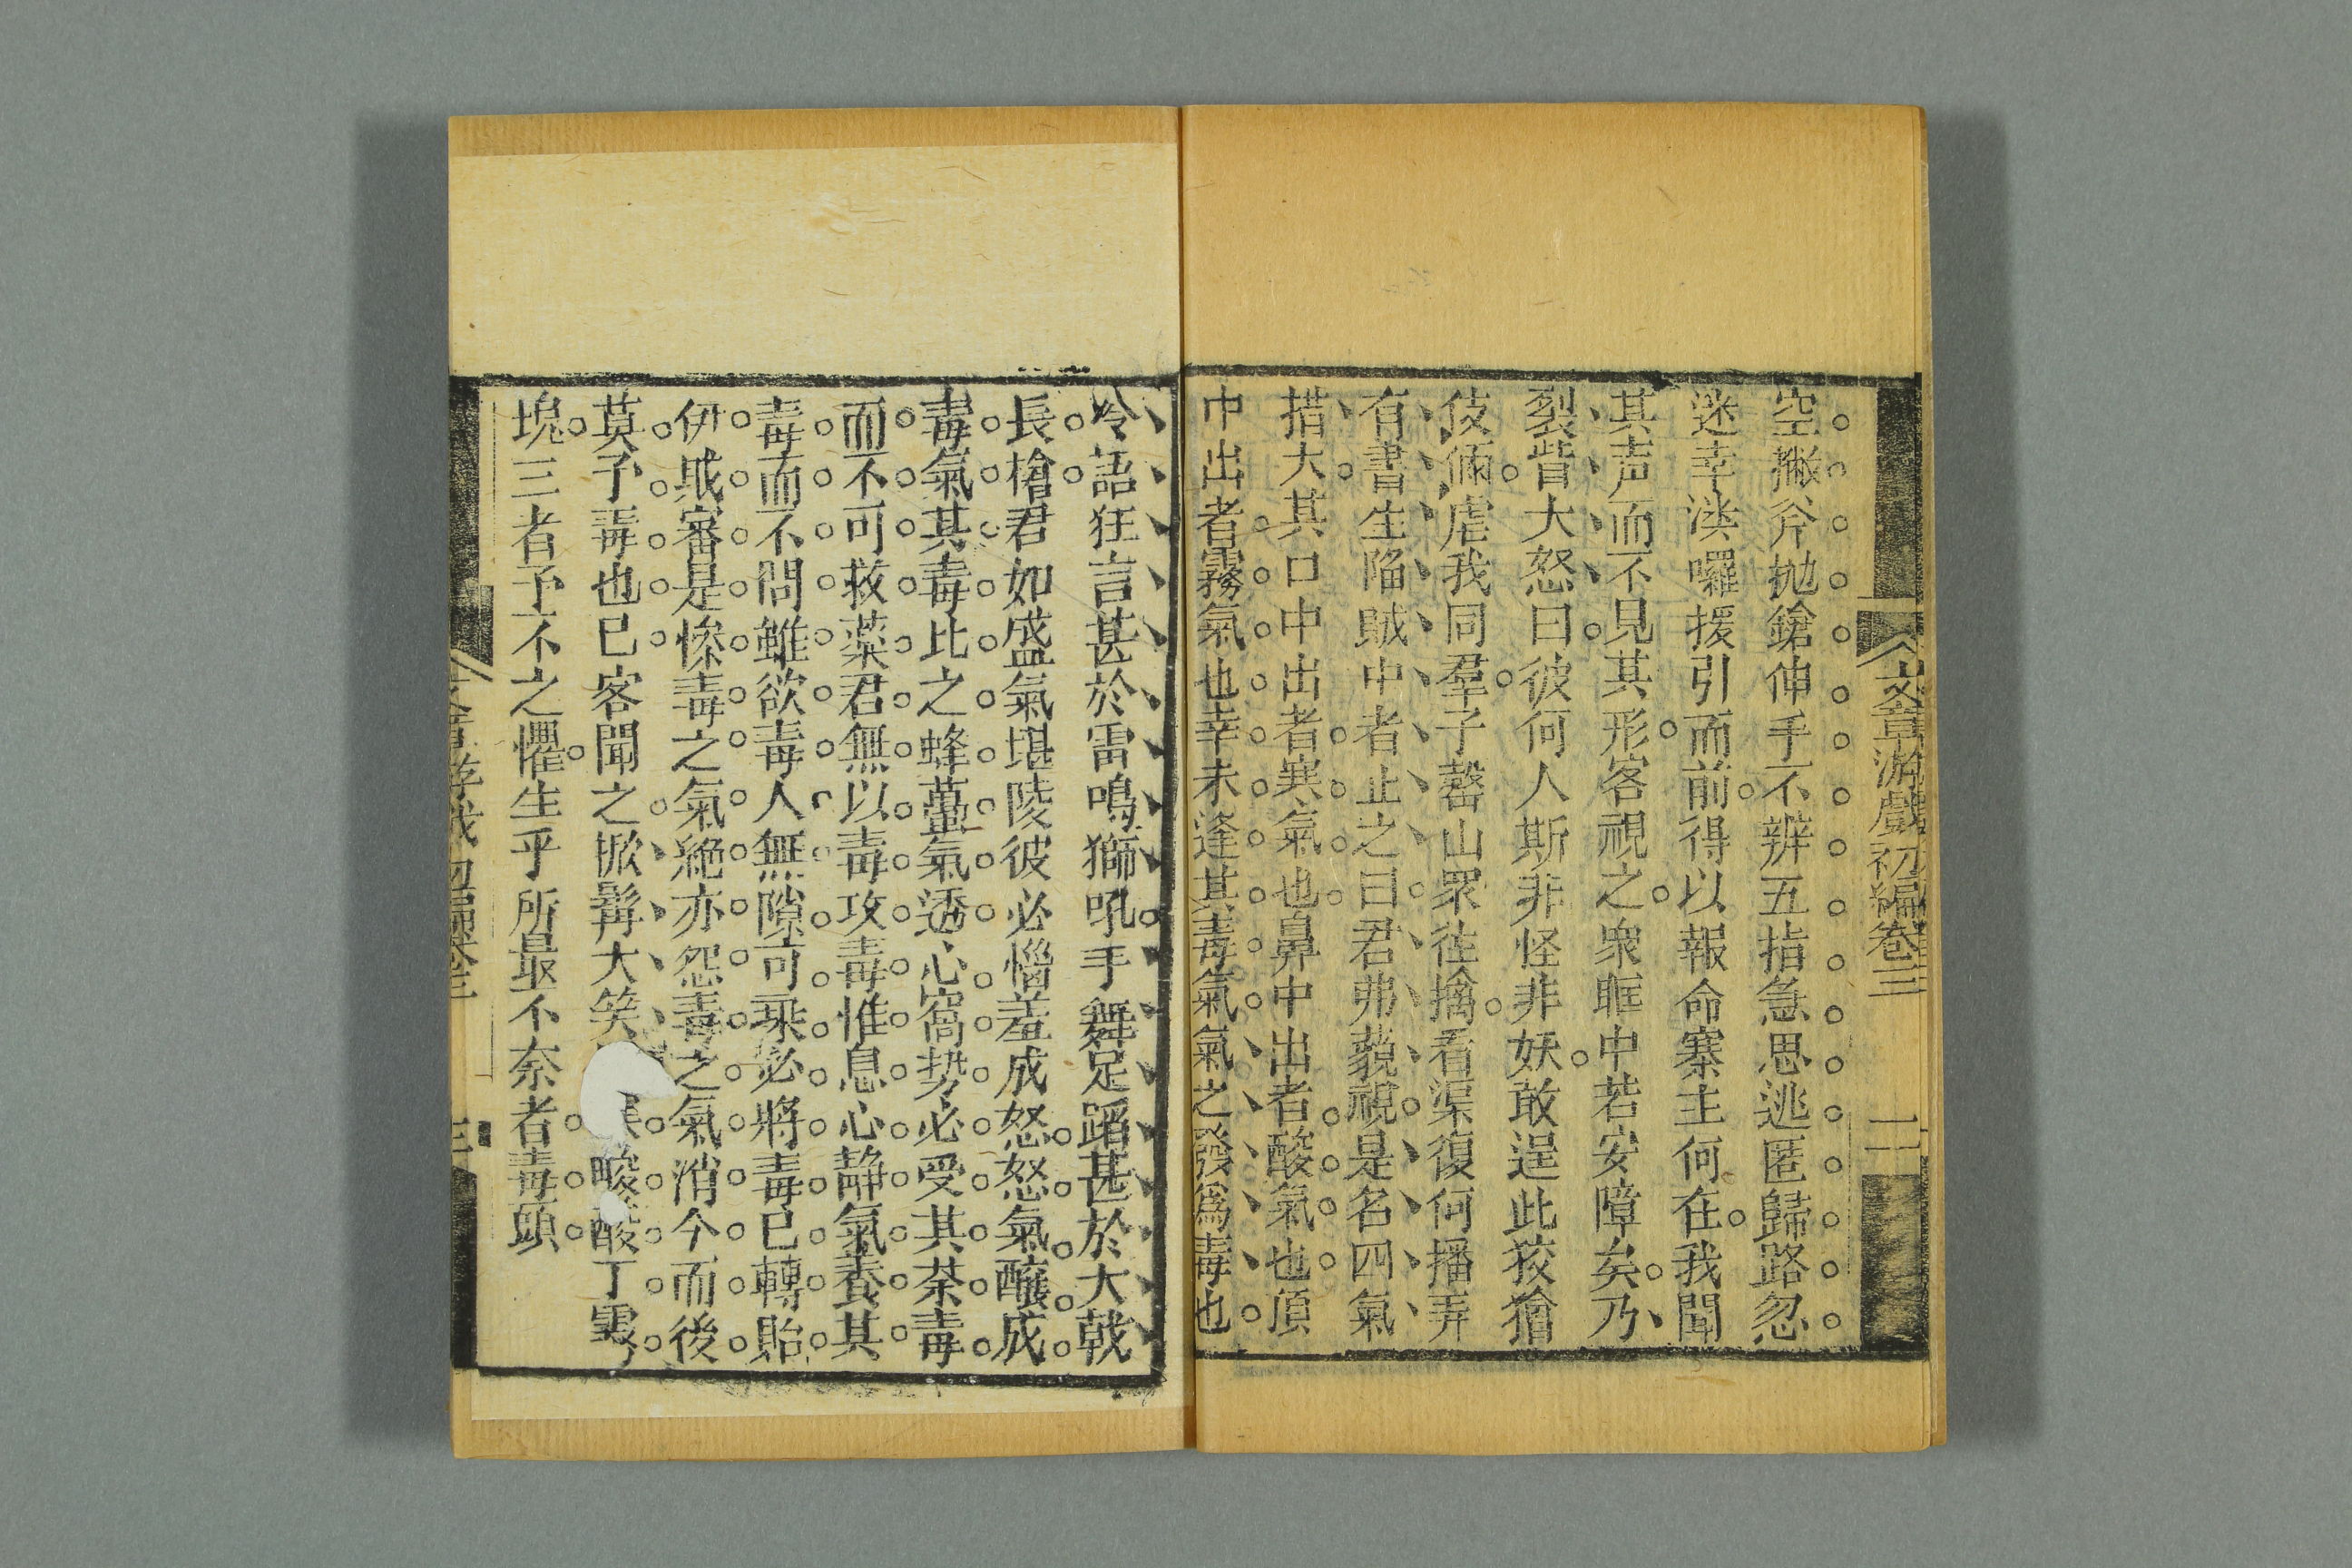 文章游戲初編卷三
二
空撇斧拋鎗伸手不辨五指急思逃匿歸路忽
迷幸漢囉援引而前得以報命寨主何在我聞
其声而不見其形客視之衆眶中若安障矣乃
裂眥大怒曰彼何人斯非怪非妖敢逞此狡獪
伎倆虐我同羣子罄山眾徃擒看渠復何播弄
有書生陷賊中者止之曰君弗藐視是名四氣
措大其口中出者寒氣也鼻中出者酸氣也頂
中出者霧氣也幸未逢其毒氣氣之發爲毒也
冷語狂言甚於雷鳴獅吼手舞足蹈甚於大戟
長槍君如盛氣堪陵彼必惱羞成怒怒氣釀成
毒氣其毒比之蜂蠆氣透心窩势必受其荼毒
而不可救藥君無以毒攻毒惟息心静氣養其
毒而不問雖欲毒人無隙可乘必將毒已轉貽
伊戚審是慘毒之氣絶亦怨毒之氣消今而後
莫予毒也已客聞之掀髯大笑酸丁雾
塊三者予不之懼生乎所最不奈者毒頭
三